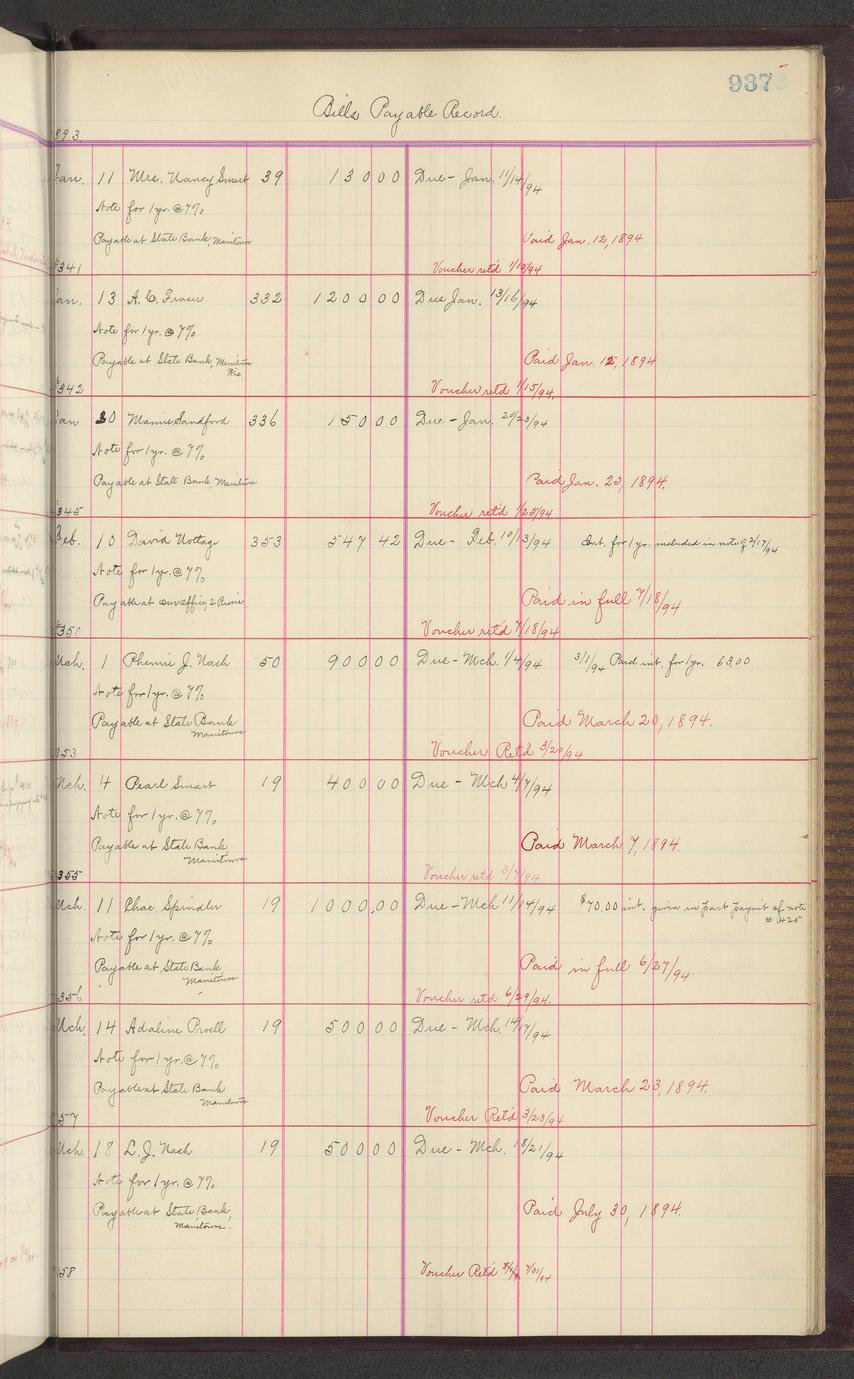 937
Bills Payable Record.
893.
Jan. 11 Mrs. Nancy Smart 39 130 00 Due - Jan. 11/14/94
Note for 1 yr. @ 7%
Payable at State Bank Manitowoc Paid Jan. 12, 1894
#341 Voucher ret'd 1/19/94
Jan. 13 332 1200 00 Due Jan. 13/16/94
Note for 1 yr. @ 7%
Payable at State Bank, Manitowoc Paid Jan. 15, 1894
Wis.
#342 Voucher retd 1/15/94
Jan 20 Mamie Sandford 336 150 00 Due - Jan. 20/23/94
Note for 1 yr. @ 7%
Payable at State Bank Manitowoc Paid Jan. 23, 1894.
#345 Voucher ret'd 1/25/94
Feb. 10 David Nottage 353 547 42 Due - Feb. 10/13/94 Int. for 1 yr. included in note of 2/17/94
Note for 1 yr. @ 7%
Payable at our office, 2 Rivers Paid in full 7/18/94
#351 Voucher ret'd 7/18/94
Mch. 1 Phemie J. Nash 50 900 00 Due - Mch. 1/4/94 3/1/94 Paid int. for 1 yr. 63.00
Note for 1 yr. @ 7%
Payable at State Bank Paid March 20, 1894.
Manitowoc
353 Voucher Ret'd 3/20/94
Mch. 4 Pearl Smart 19 400 00 Due - Mch 4/7/94
Note for 1 yr. @ 7%
Payable at State Bank, Paid March 7, 1894.
Manitowoc
355 Voucher retd 3/7/94
Mch. 11 Chas. Spindler 19 1000.00 Due - Mch 11/14/94 $70.00 int. given in part paym't of note
# 425
Note for 1 yr. @ 7%
Payable at State Bank Paid in full 6/27/94.
Manitowoc
356 Voucher retd 6/29/94.
Mch. 14 Adaline Prvell 19 500 00 Due - Mch. 14/17/94
Note for 1 yr. @ 7%
Payable at State Bank Paid March 23, 1894.
Manitowoc
57 Voucher Ret'd 3/23/94
Mch. 18 L. J. Nash 19 500 00 Due - Mch. 18/21/94
Note for 1 yr. @ 7%
Payable at State Bank, Paid July 30, 1894.
Manitowoc.
58 Voucher Ret'd 7/31/94